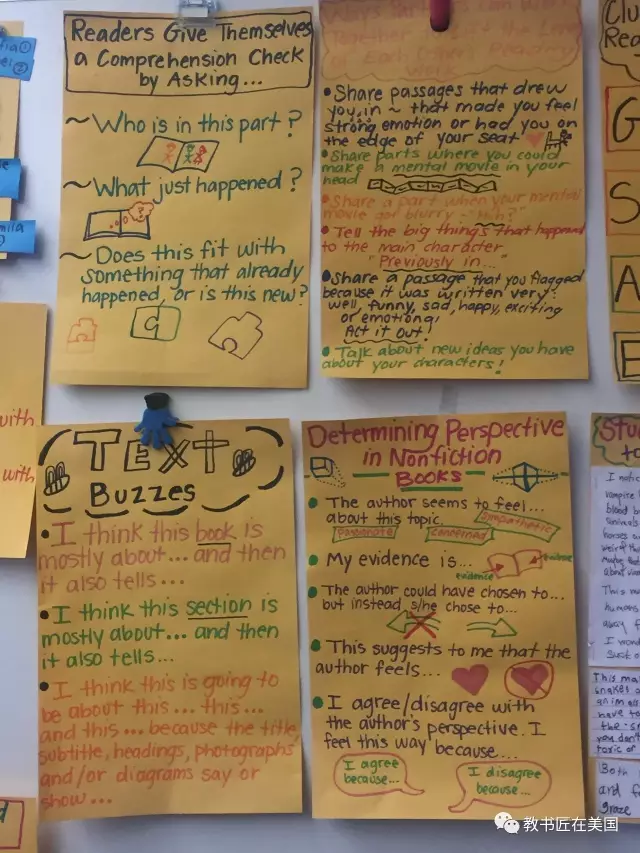 Readers Give Themselves
a Comprehension Check
by Asking...
~ Who is in this part?
~ What just happened?
~ Does this fit with
something that already
happened, or is this new?
Ways
can
Share passages that drew
you in ~ that made you feel
strong emotion or had you on
the edge of your seat
Share parts where you could
make a mental movie in your
head
Share a part when your mental
movie got blurry - "Huh?"
Tell the big things that happened
to the main character
"Previously in..."
Share a passage that you flagged
because it was written very:
well, funny, sad, happy, exciting
or emotional
Act it out!
Talk about new ideas you have
about your characters!
Clu
Rea
G
S
A
E
with
with
TEXT
Buzzes
I think this book is
mostly about... and then
it also tells...
I think this section is
mostly about... and then
it also tells...
I think this is going to
be about this... this...
and this... because the title,
subtitle, headings, photographs
and/or diagrams say or
show...
Determining Perspective
in Nonfiction
Books
The author seems to feel...
about this topic. sympathetic
passionate concerned
My evidence is...
evidence evidence
The author could have chosen to...
but instead s/he chose to...
This suggests to me that the
author feels...
I agree/disagree with
the author's perspective. I
feel this way because...
I agree
because...
I disagree
because...
Stu
to
I notic
vampire
blood b
horses a
weird th
about va
This a
humans
away f
I won
suck o
This ma
snakes
animal
have to
the
you don't
topic of
Both
and f
graze
教书匠在美国